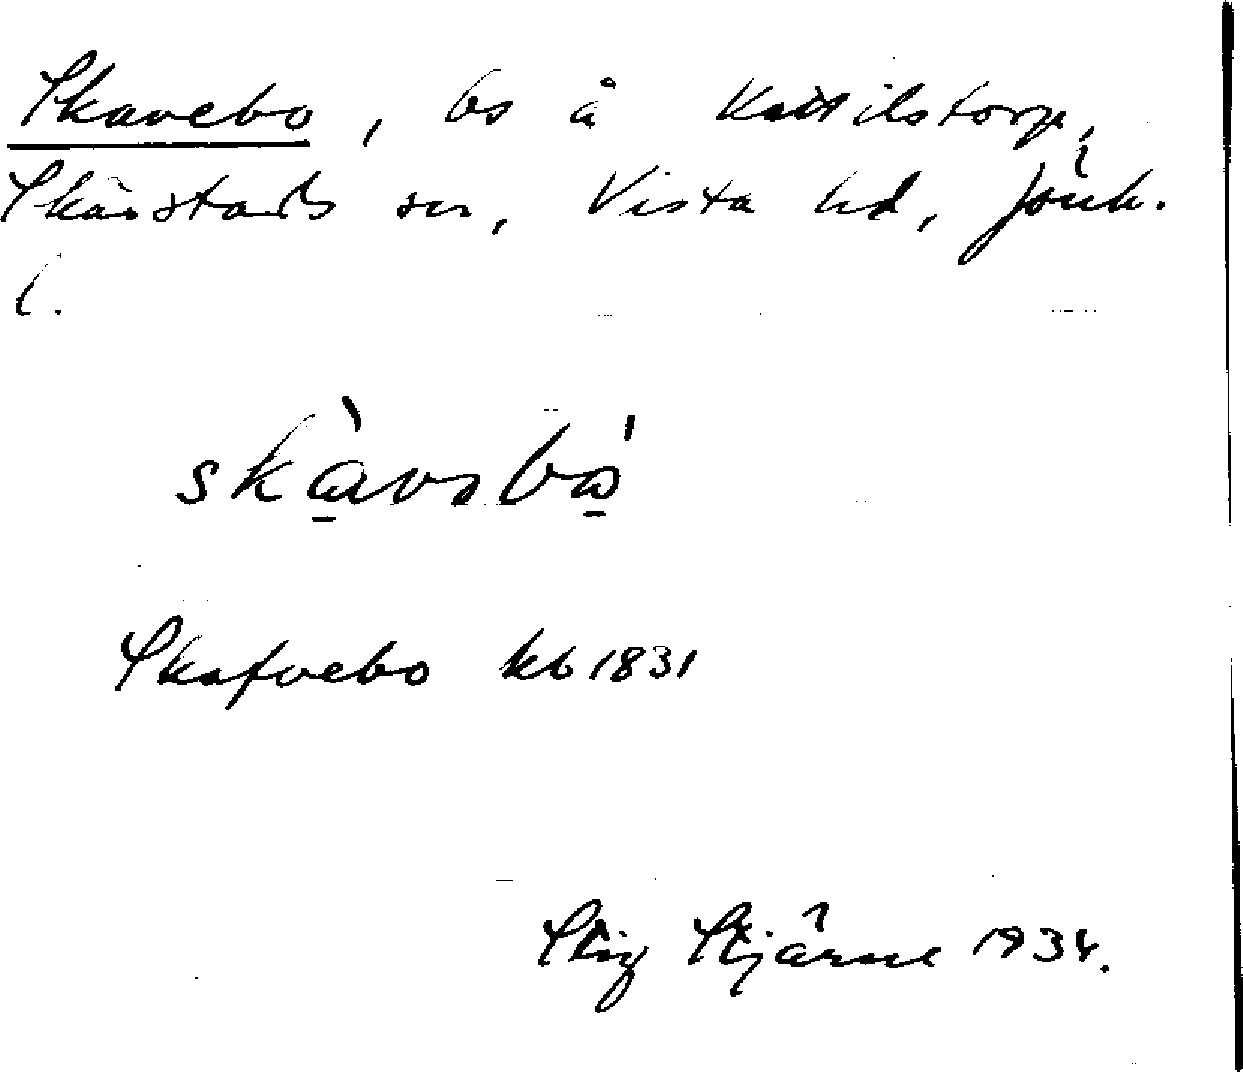 Skavebo, bs å Kättilstorp,
Skärstads sn, Vista hd, Jönk.
l.
skàvəbó
Skafvebo kb 1831
Stig Stjärne 1934.